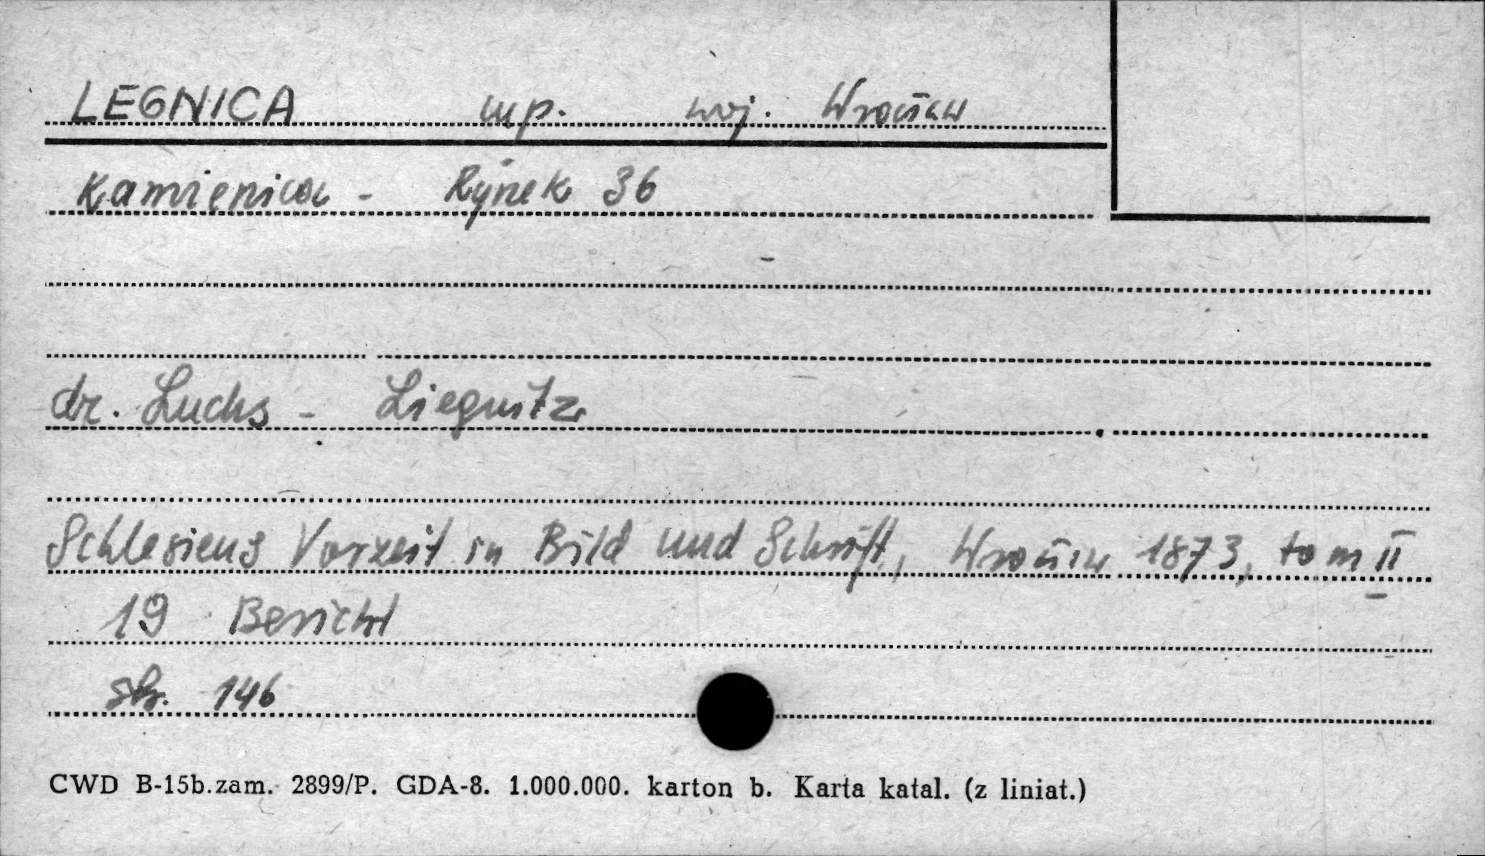 LEGNICA mp. woj. Wrocław
Kamienica - Rynek 36
dr. Luchs - Liegnitz
Schlesiens Vorzeit in Bild und Schrift, Wrocław 1873, tom II
19 Bericht
str. 146
CWD B-15b.zam. 2899/P. GDA-8. 1.000.000. karton b. Karta katal. (z liniat.)